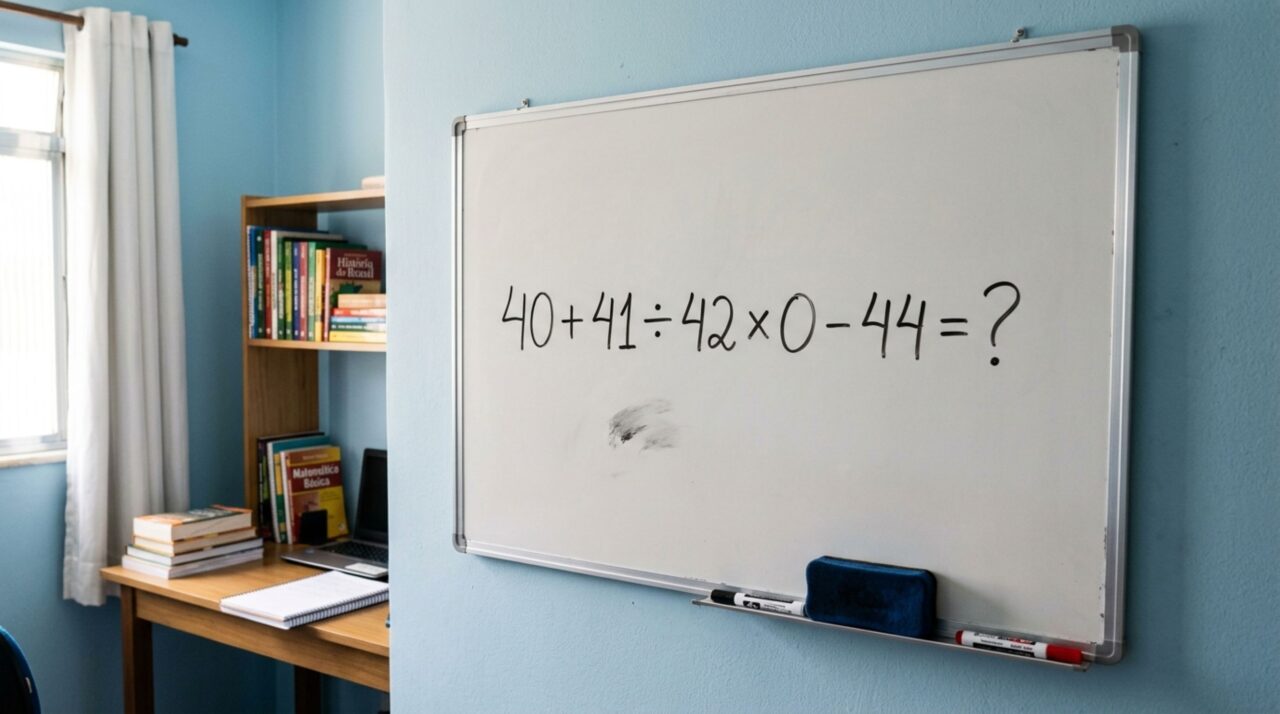 História
do Brasil
40+41÷42×0-44=?
Matemática
Básica